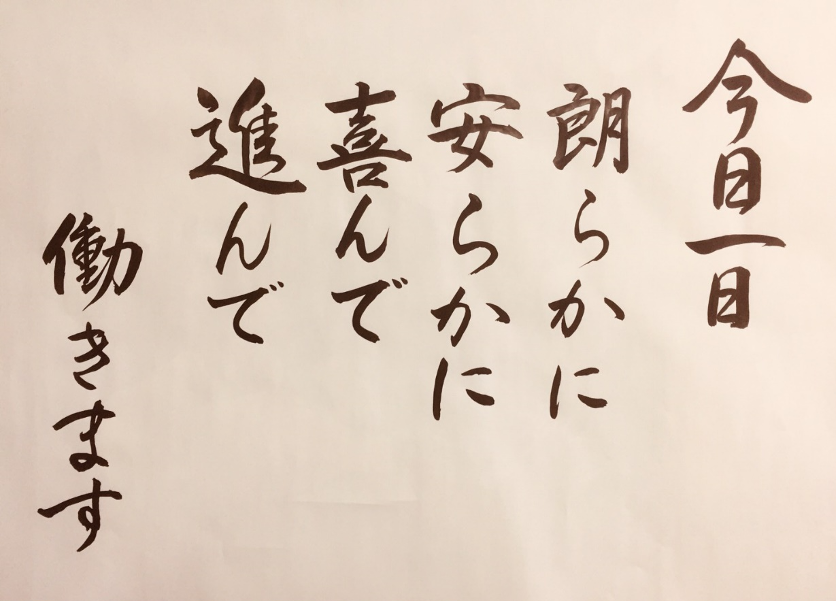 今日一日
朗らかに
安らかに
喜んで
進んで
働きます